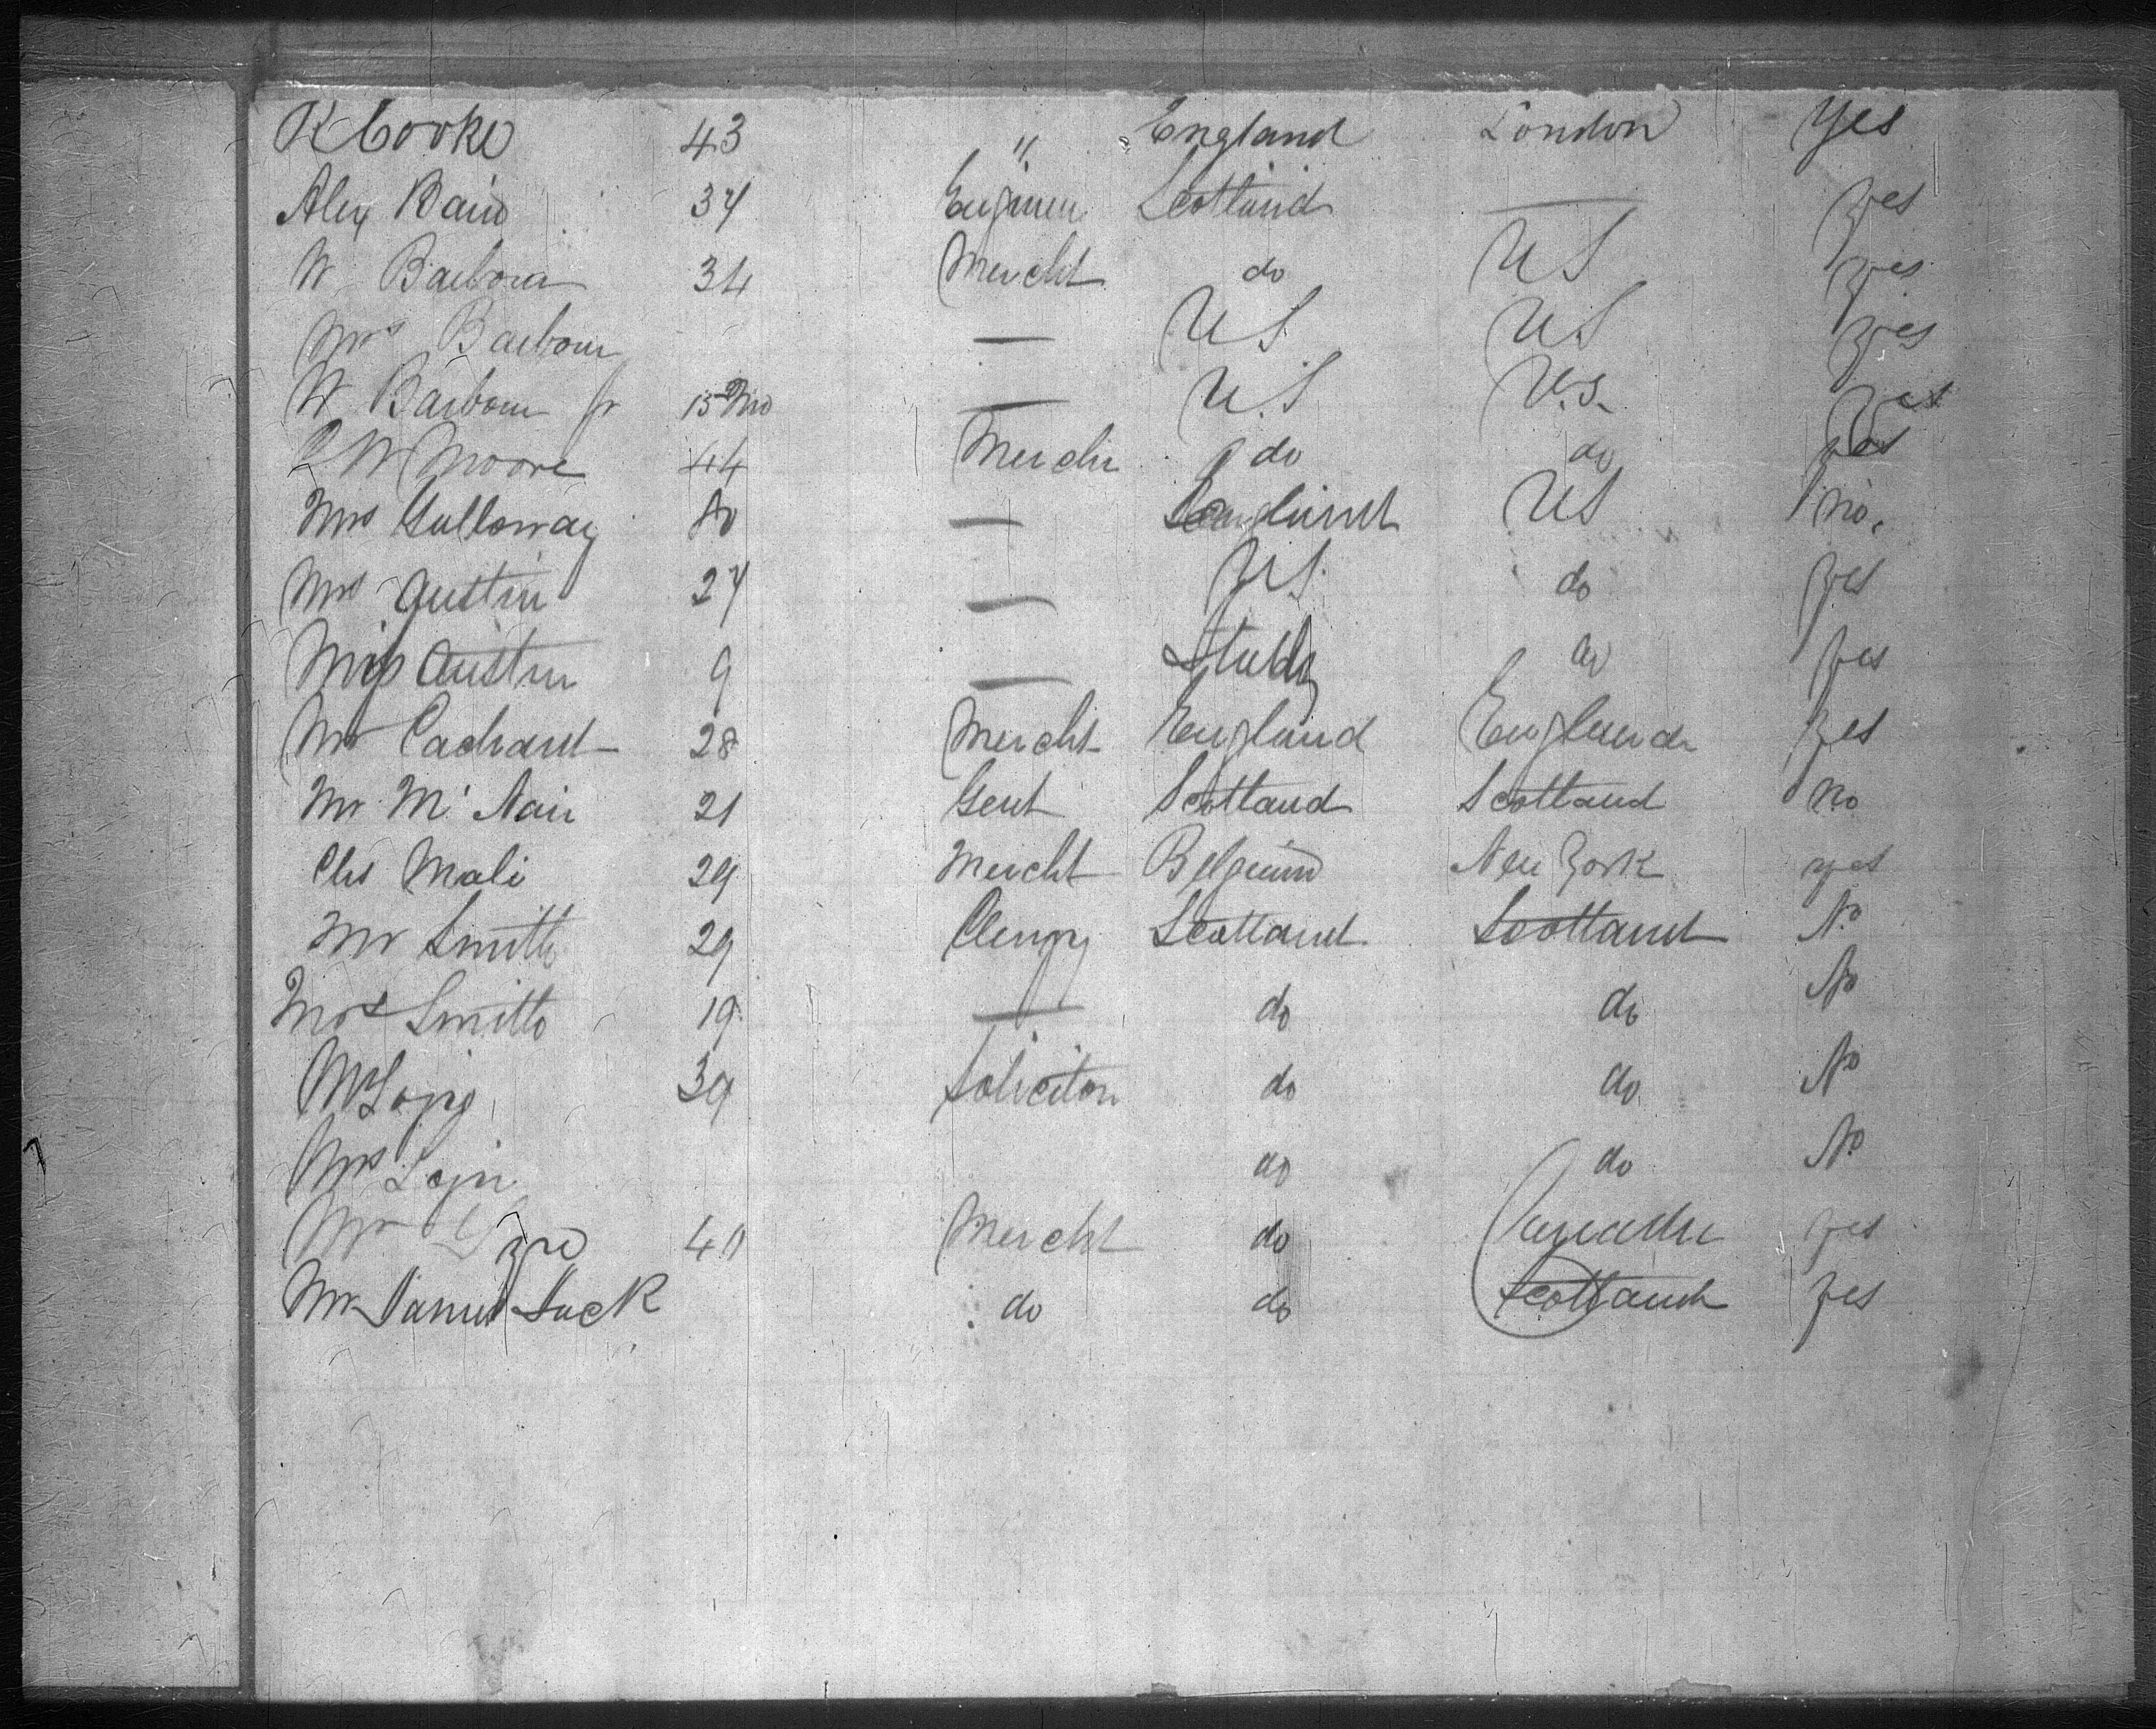 R Cooke 43 " England London Yes
Alex Baird 37 Engineer Scotland — yes
W Barbour 34 Mercht do US yes
Mrs Barbour — US US yes
W Barbour Jr 15 Mo — U.S U.S. Yes
W Moore 44 Mercht do do yes
Mrs Galloway — England US no.
Mrs Austin 27 — US do yes
Miss Austin 9 — do yes
Mr 28 Mercht England England yes
Mr Mc Nair 21 Gent Scotland Scotland no
Chs Mali 29 Mercht Belgium New York yes
Mr Smith 29 Clergy Scotland Scotland No
Mrs Smith 19 — do do No
39 Solicitor do do No
Mrs do do No
Mr 40 Mercht do Canada yes
Mr do do Scotland yes